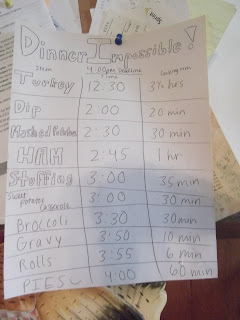 Dinner Impossible!
Item 4:00pm Deadline Cooking Time
Time
Turkey 12:30 3½ hrs
Dip 2:00 20 min
Mashed Potatoes 2:30 30 min
HAM 2:45 1 hr
Stuffing 3:00 35 min
Sweet Potato Casserole 3:00 30 min
Broccoli 3:30 30 min
Gravy 3:50 10 min
Rolls 3:55 6 min
PIES 4:00 60 min